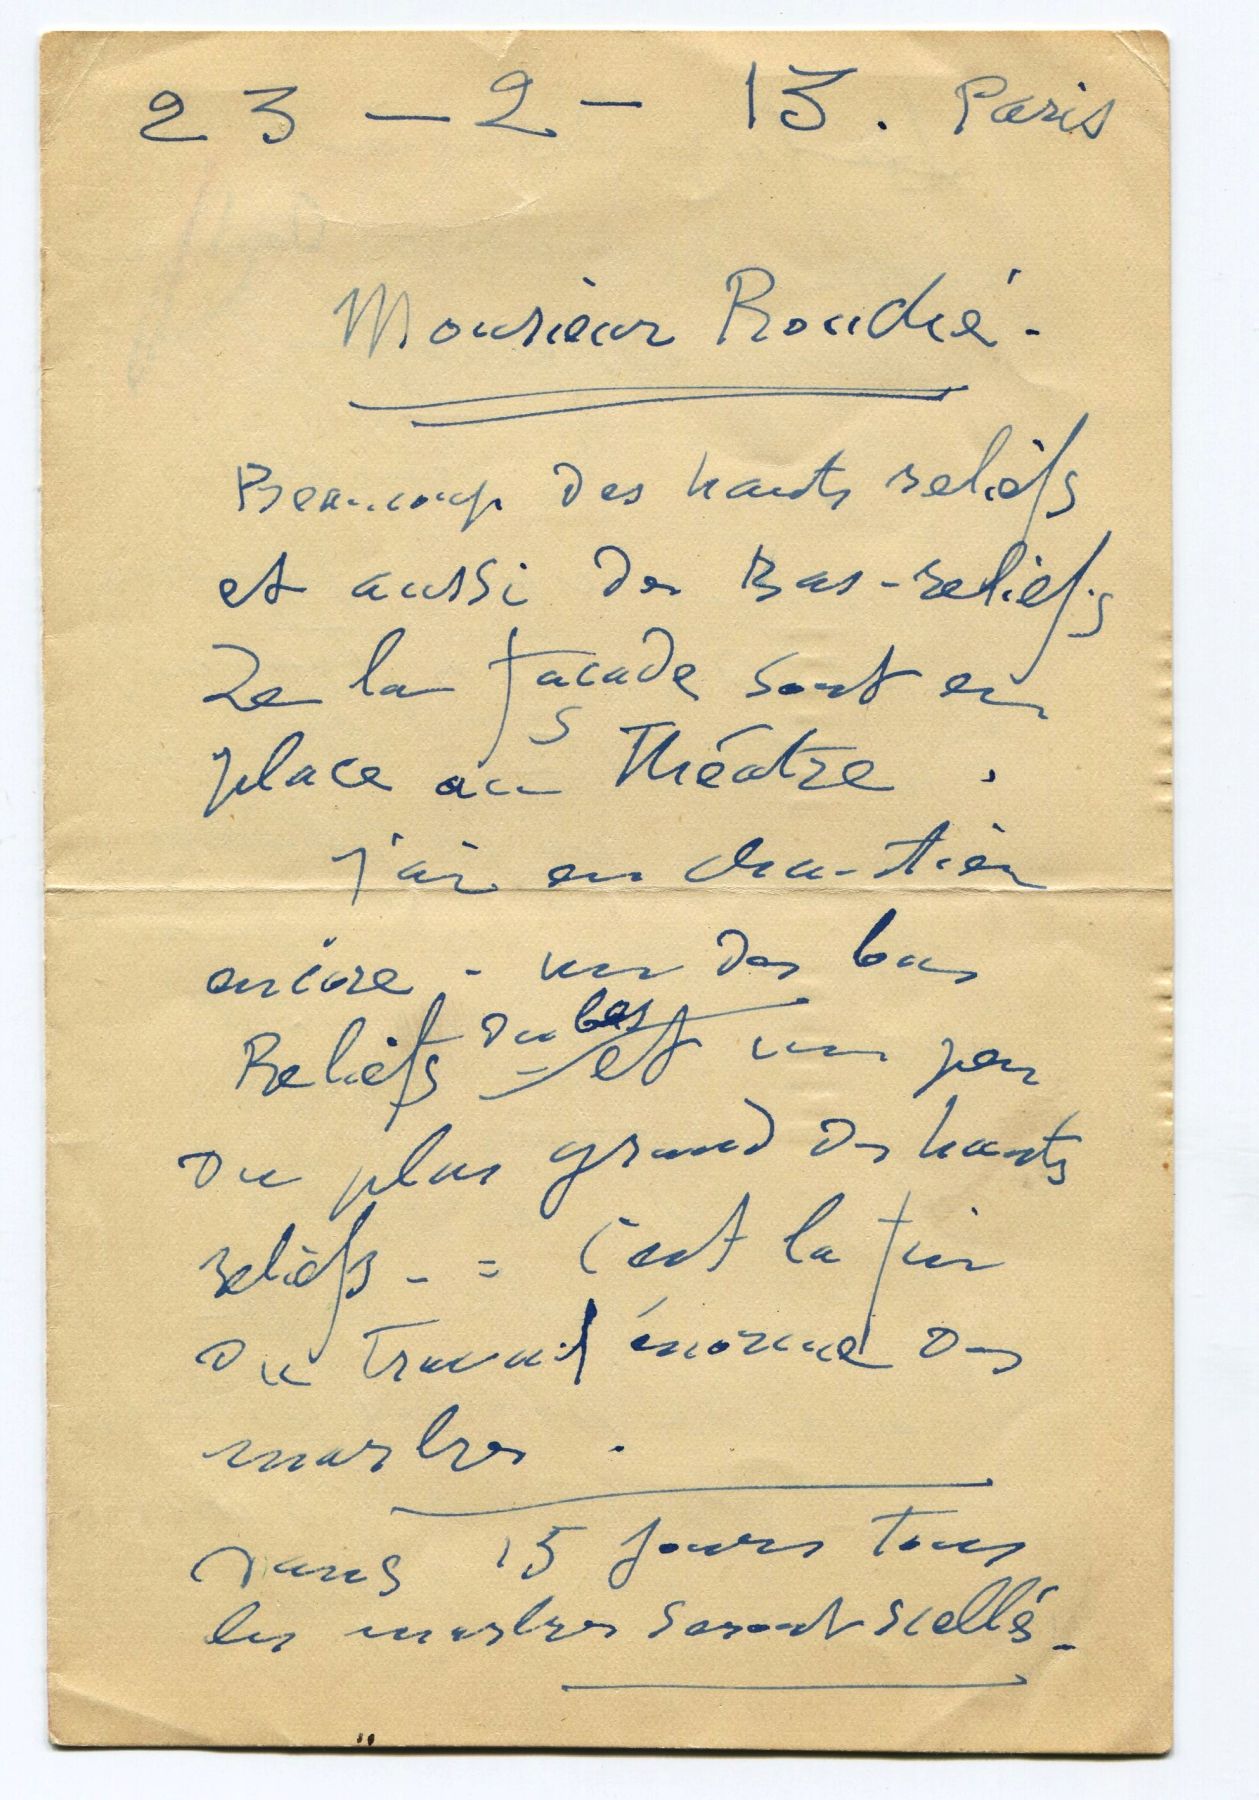 23 - 2 - 13. Paris
Monsieur Rouché -
Beaucoup des hauts reliefs
et aussi des Bas-reliefs
De la façade sont en
place au Théâtre .
j'ai en chantier
encore - un des bas
Reliefs du bas - et un peu
du plus grand des hauts
reliefs - = c'est la fin
du travail énorme des
marbres .
Dans 15 jours tous
les marbres seront scellés -